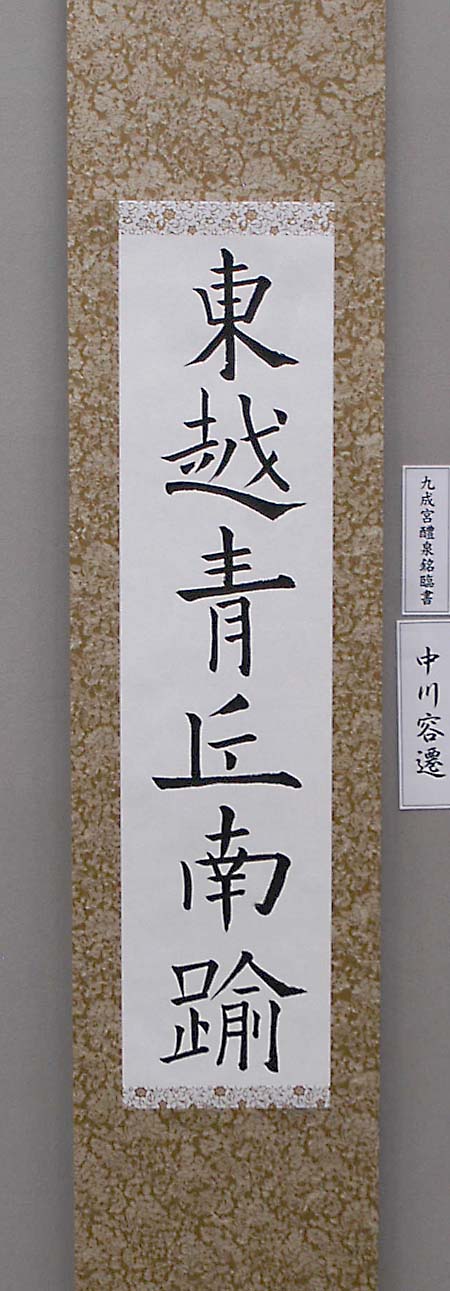 東越青丘南踰
九成宮醴泉銘臨書
中川容遷